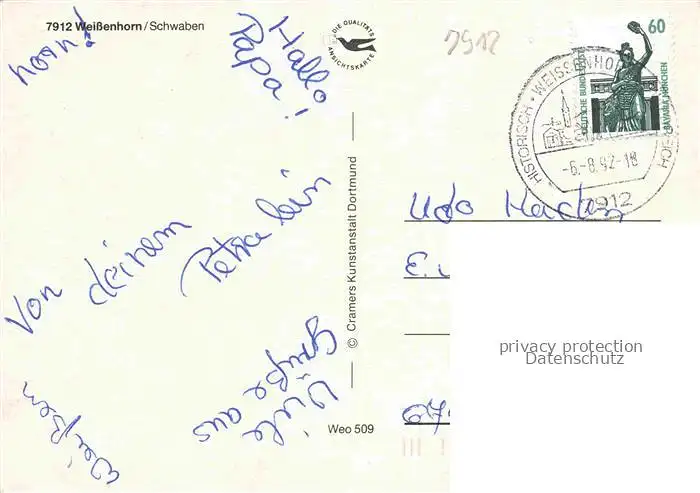 7912 Weißenhorn/Schwaben
DIE QUALITÄTS
ANSICHTSKARTE
Hallo
Papa!
Viele
Grüße aus
Weißen
horn!
Von deinem
Petralein
© Cramers Kunstanstalt Dortmund
Weo 509
7912
60
DEUTSCHE BUNDESPOST
BAVARIA MÜNCHEN
HISTORISCH · WEISSENHO
EICH
-6.-8.92-18
7912
Udo
E.
67.
privacy protection
Datenschutz